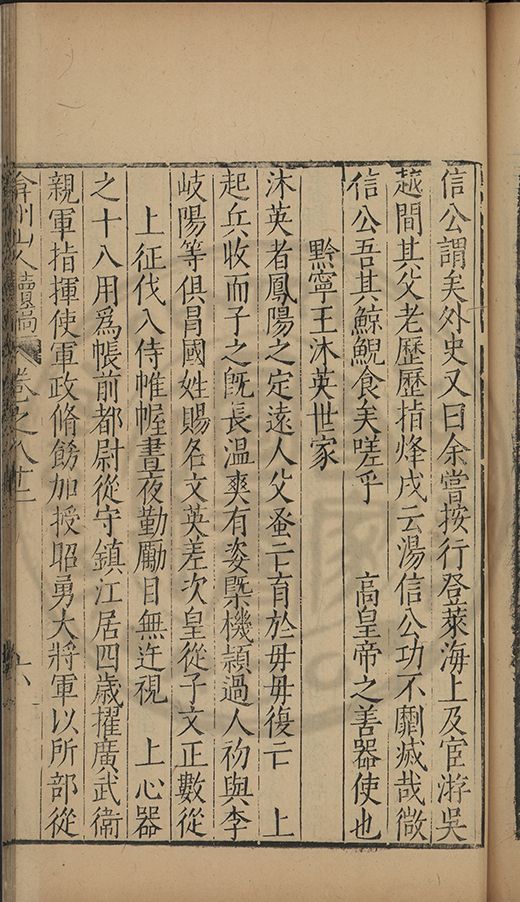 信公謂矣外史又曰余嘗按行登萊海上及宦游吳
越間其父老歷歷指烽戍云湯信公功不劘烕哉微
信公吾其鯨鯢食矣嗟乎　　高皇帝之善器使也
黔寧王沐英世家
沐英者鳳陽之定遠人父蚤亡育於毋毋復亡　上
起兵收而子之旣長溫爽有姿槩機頴過人初與李
岐陽等俱冒國姓賜名文英差次皇從子文正數從
上征伐入侍帷幄晝夜勤勵目無迕視　上心器
之十八用爲帳前都尉從守鎮江居四歲擢廣武衛
親軍指揮使軍政脩飭加授昭勇大將軍以所部從
弇州山人續稿　卷之八十二　六